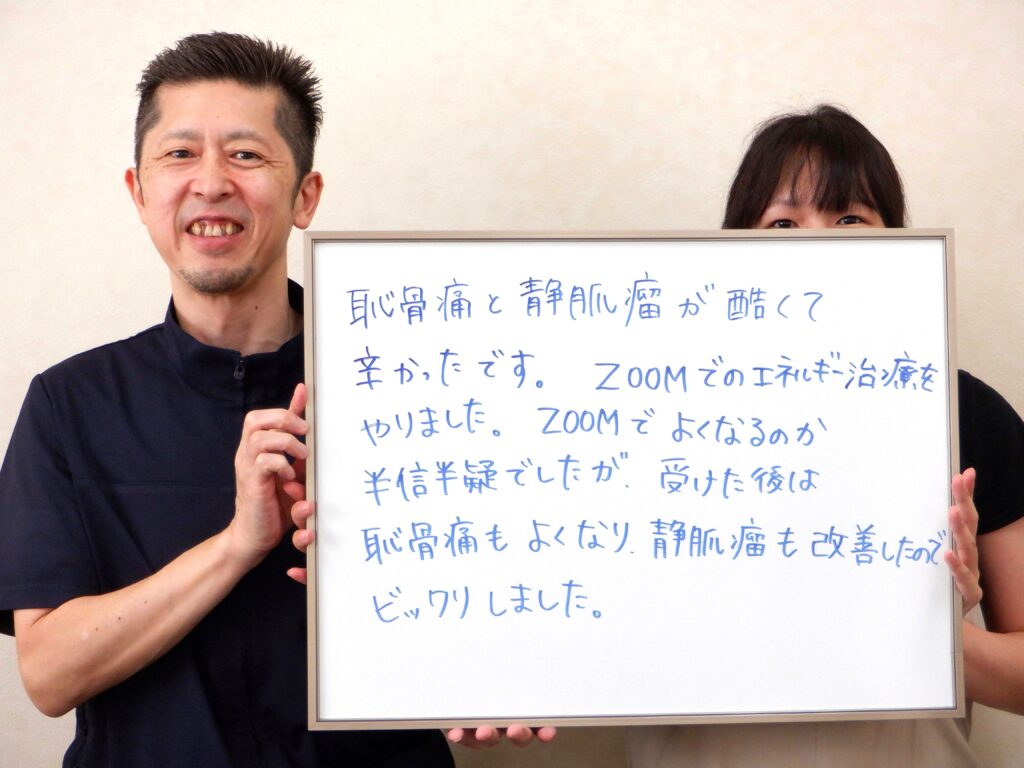 恥骨痛と静脈瘤が酷くて
辛かったです。 ZOOMでのエネルギー治療を
やりました。 ZOOMで よくなるのか
半信半疑でしたが、受けた後は
恥骨痛もよくなり、静脈瘤も改善したので
ビックリしました。